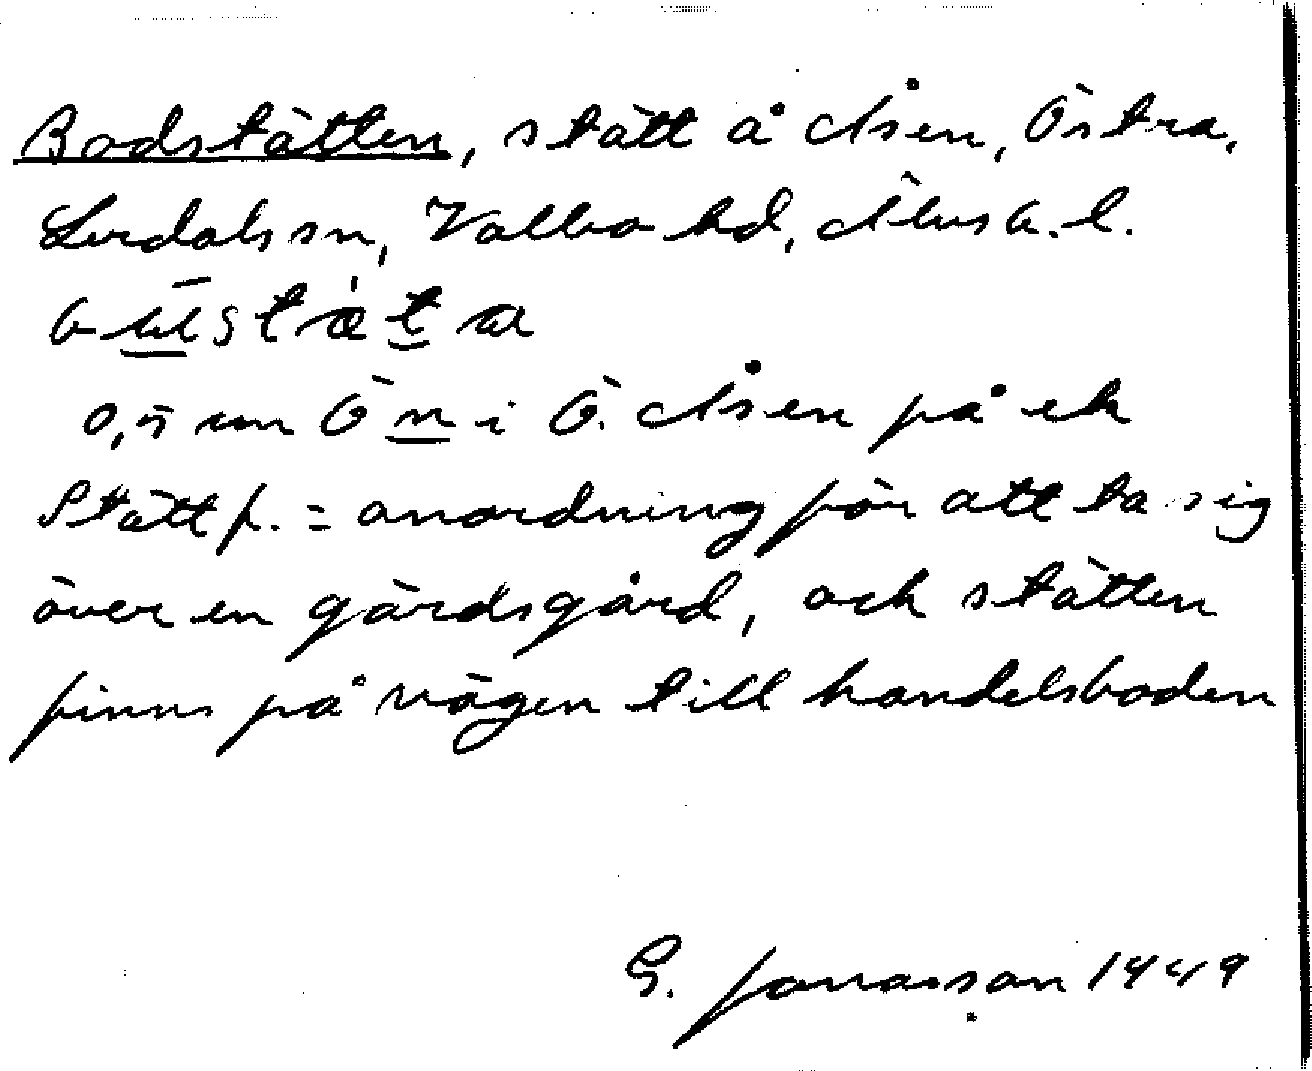 Bodstätten, stätt å Åsen, Östra,
Lerdals sn, Valbo hd, Älvsb. l.
0,5 km Ö n i Ö. Åsen på ek
Stätt f. = anordning för att ta sig
över en gärdsgård, och stätten
finns på vägen till handelsboden
G. Jonasson 1949